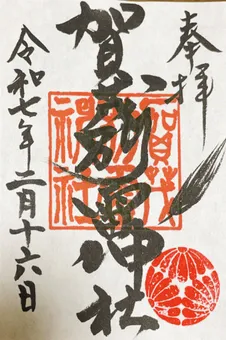 奉拝
賀茂別雷神社
令和七年二月十六日
賀茂
神社